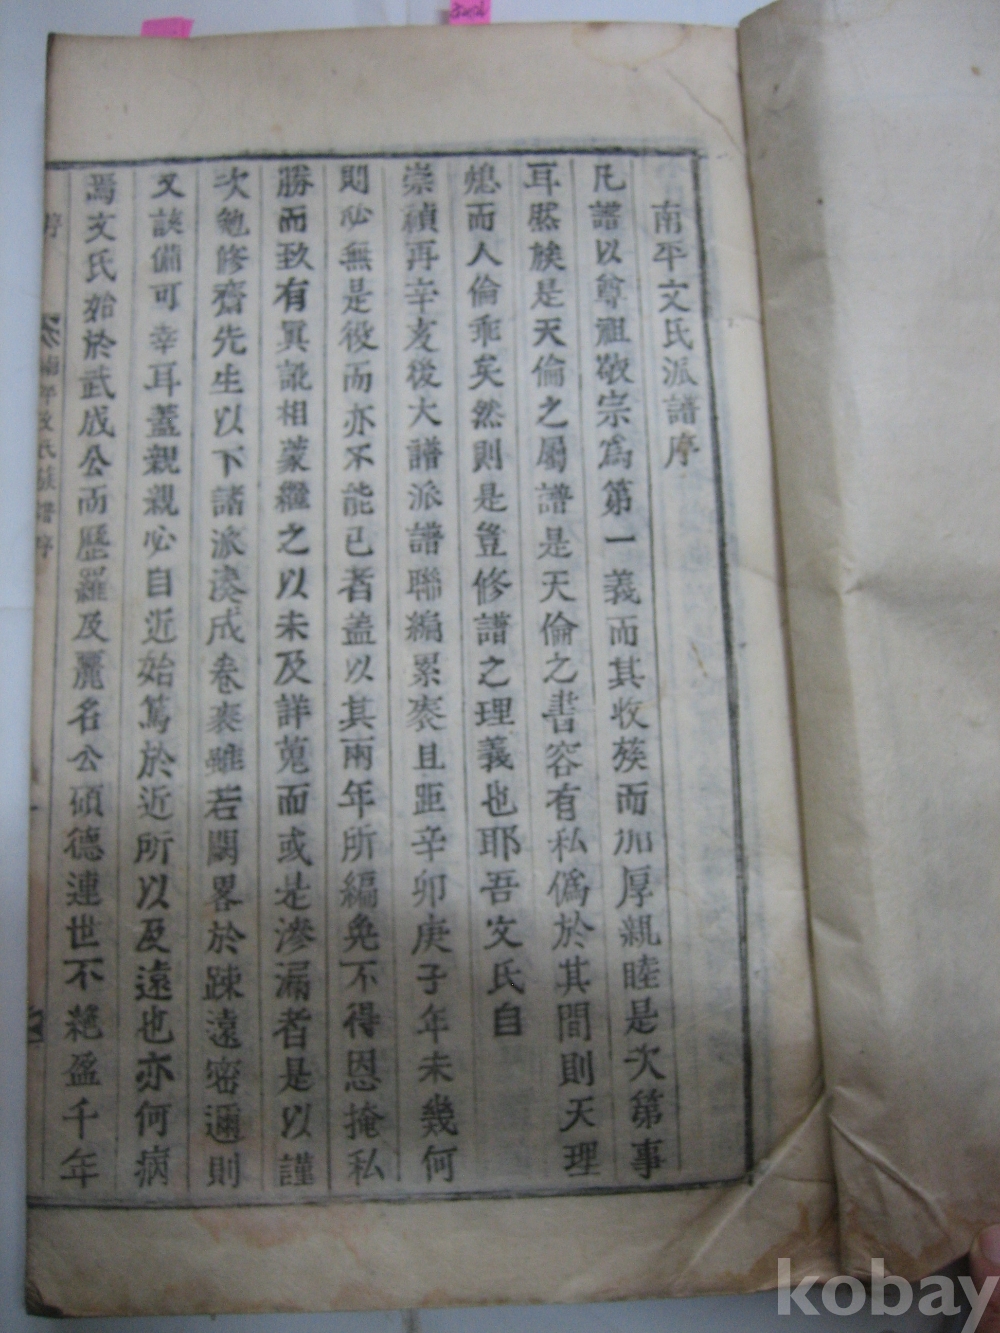 南平文氏派譜序
凡譜以尊祖敬宗爲第一義而其收族而加厚親睦是次第事
耳然族是天倫之屬譜是天倫之書容有私僞於其間則天理
熄而人倫乖矣然則是豈修譜之理義也耶吾文氏自
崇禎再辛亥後大譜派譜聯編累袠且距辛卯庚子年未幾何
則必無是役而亦不能已者盖以其兩年所編免不得恩掩私
勝而致有冥訛相蒙繼之以未及詳蒐而或是滲漏者是以謹
次勉修齋先生以下諸派湊成卷袠雖若闊畧於踈遠密邇則
文該備可幸耳蓋親親必自近始篤於近所以及遠也亦何病
焉文氏始於武成公而歷羅及麗名公碩德連世不絶盈千年
南平文氏族譜序
kobay